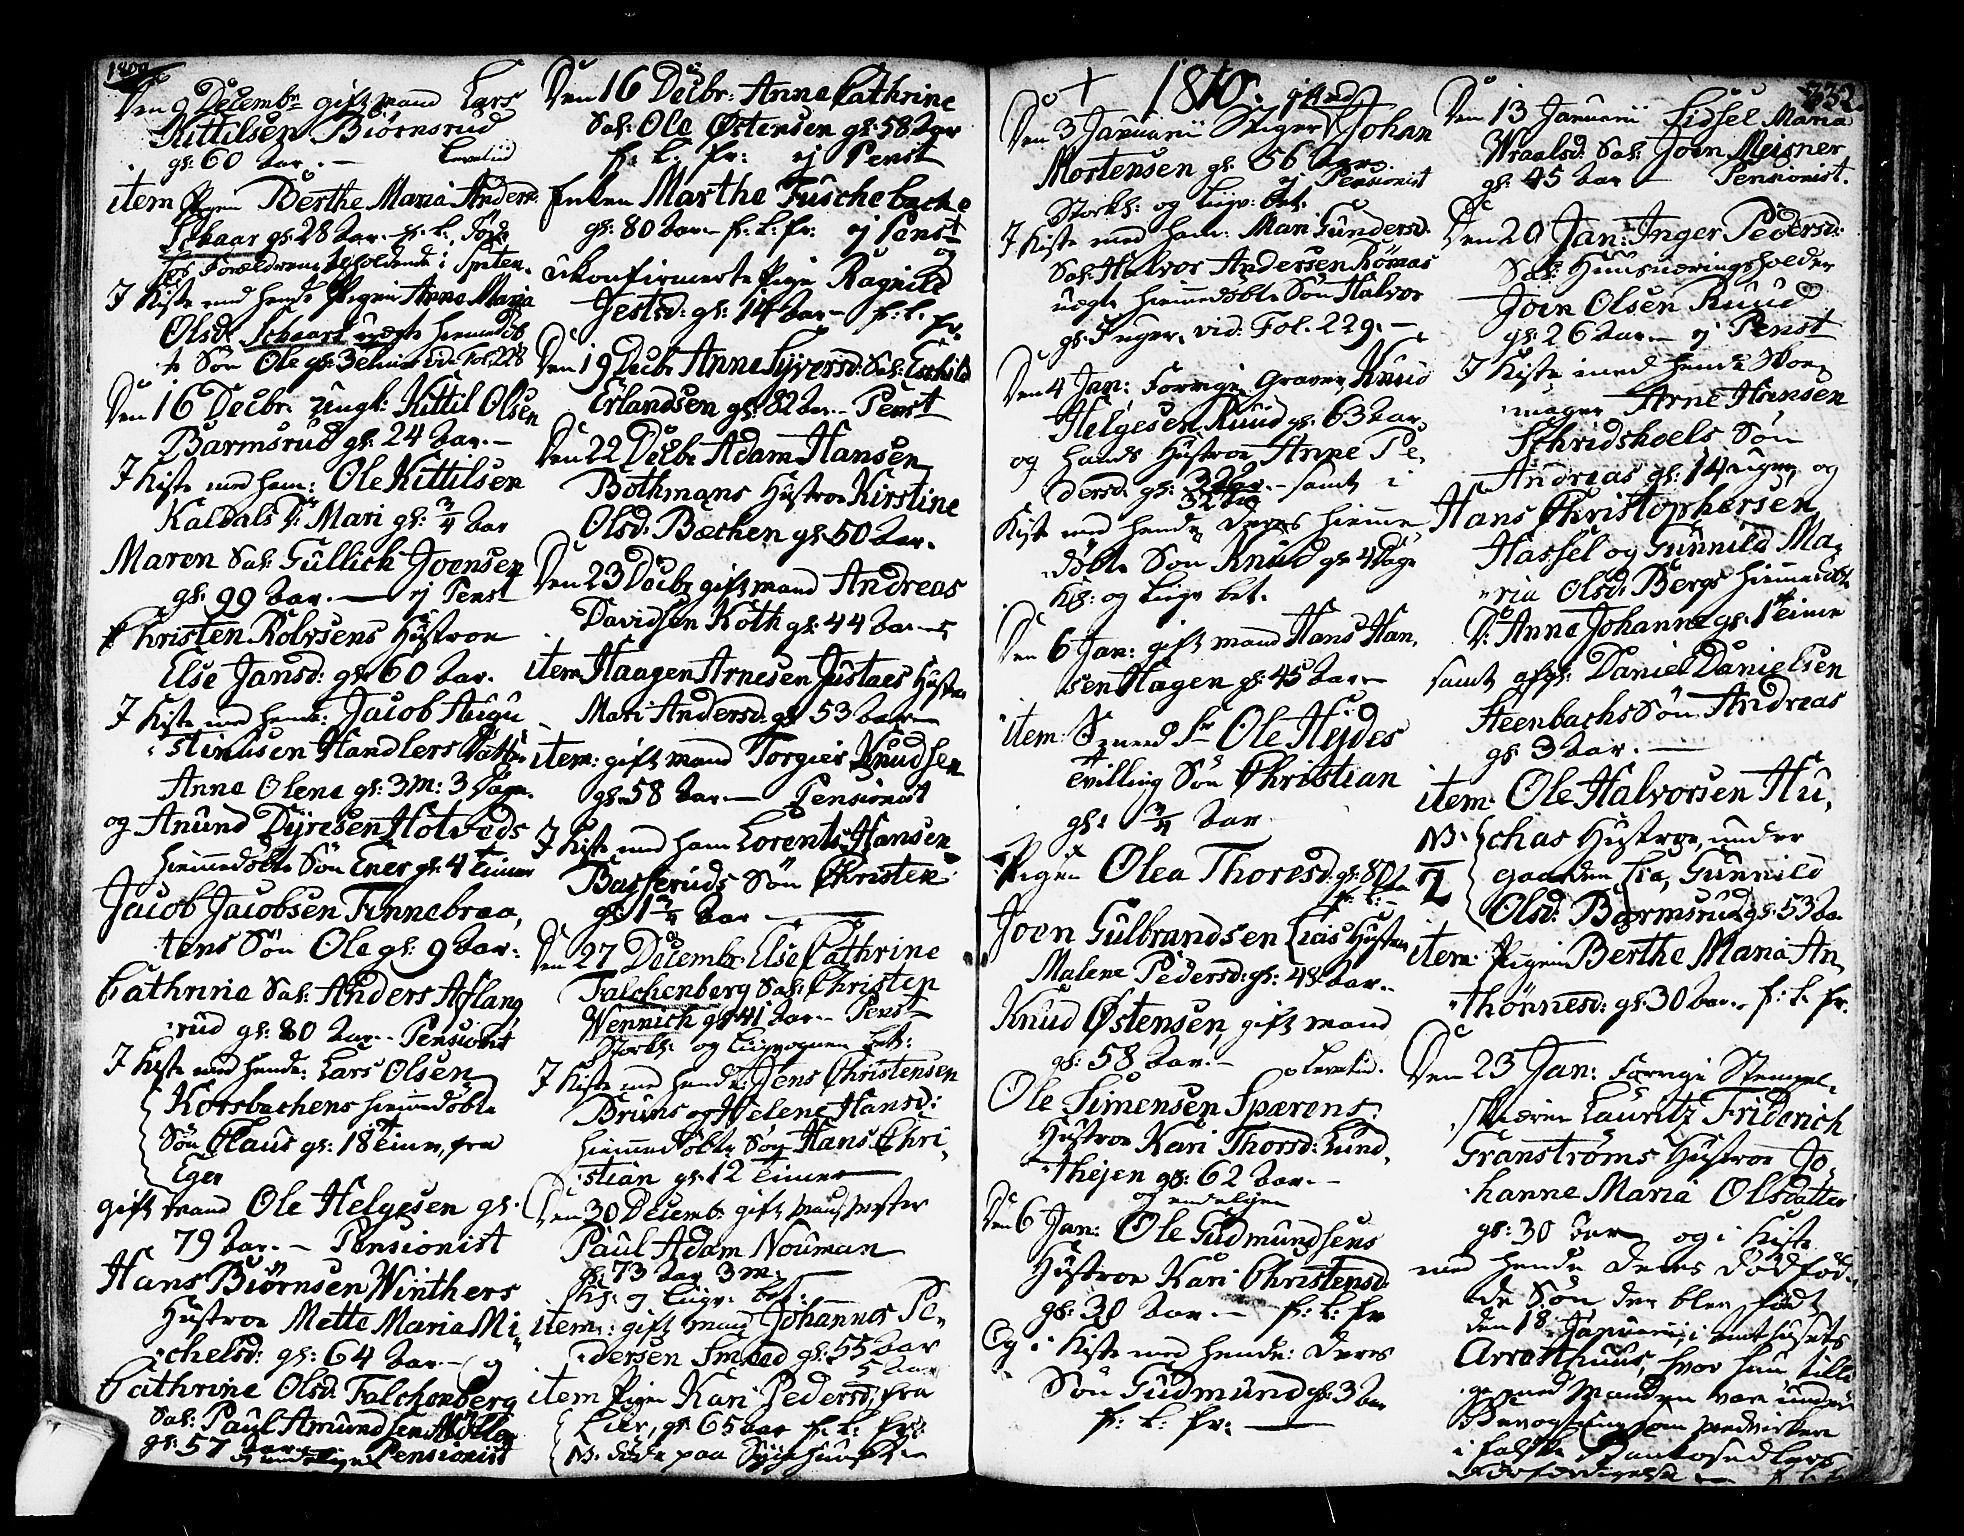 1809
Den 9 Decembr gift mand Lars
Kittilsen Biørnsrud
gl: 60 Aar.
item Pigen Berthe Maria Anders
gl: 28 Aar f: l:
I Kiste med hende Pigen Anne Maria
Olsd: uægte hiemedøb
te Søn Ole gl: vid: Fol: 228
Den 16 Decbr. ungk: Kittil Olsen
Barmsrud gl: 24 Aar.
I Kiste med ham: Ole Kittilsen
Kaldals D: Mari gl: 3/4 Aar
Maren Sal: Gullich Joensen
gl: 99 Aar. ej Penst
Christen Rolvsens Hustroe
Else Jansd: gl: 60 Aar.
I Kiste med hende: Jacob Augu
stinusen Handlers
Anne Olene gl: 3 M: 3 Dage.
og Anund Dyresen Hotveds
hiemmedøbte Søn Ener gl: 4 Timer
Jacob Jacobsen Finnebraa,
tens Søn Ole gl: 9 Aar.
Cathrine Sal: Anders Aslang
rud gl: 80 Aar. Pensionist
I Kiste med hende: Lars Olsen
Korsbachens hiemmedøbte
Søn Claus gl: 18 Timer, fra
Eger
gift mand Ole Helgesen gl:
79 Aar. Pensionist
Hans Biørnsen Winthers
Hustroe Mette Maria Mi
chelsd: gl: 64 Aar. og
Cathrine Olsd. Falchenberg
Sal: Paul Amundsen
gl: 57 Aar Pensionist
Den 16 Decbr: Anne Cathrine
Sal: Ole Østensen gl: 58 Aar
f: l: fr: ej Penst
Enken Marthe Fuschebache
gl: 80 Aar f: l: fr: ej Penst
og
ukonfirmerte Pige Ragnild
Jestsd: gl: 14 Aar f: l: fr:
Den 19 Decbr Anne Syversd: Sal: Eskild
Erlandsen gl: 82 Aar. Penst
Den 22 Decbr Adam Hansen
Bothmans Hustroe Kirstine
Olsd: Bachen gl: 50 Aar.
Den 23 Decbr gift mand Andreas
Davidsen Koth gl: 44 Aar
item Haagen Arnesen Justaes Hustroe
Mari Andersd: gl: 53 Aar
item: gift mand Torgier Knudsen
gl: 58 Aar. Pensionist
I Kiste med ham Lorents Hansen
Basserüds Søn Christen
gl: 1 3/4 Aar
Den 27 Decembr Else Cathrine
Falchenberg Sal: Christen
Wennich gl: 41 Aar. Penst
Storkl: og Liigvognen bet:
I Kiste med hende: Jens Christensen
Bruns og Helene Hansd:
hiemmedøbte Søn Hans Chri
stian gl: 12 Timer
Den 30 Decemb: gift
Paul Adam Nouman
gl: 73 Aar 3 M.
Kl: og Liigv: bet:
item: gift mand Johannes Pe
dersen Smed gl: 55 Aar
5 Aar
item Pigen Kari Pedersd: fra
Lier, gl: 65 Aar f: l: fr:
NB. døde paa Sygehuuset
1810.
Den 3 Januarii Stiger Johan
Mortensen gl: 56 Aar
ej Pensionist
Storkl: og Liigv: bet.
I Kiste med ham: Mari Gundersd:
Sal: Halvor Andersen Komas
uægte hiemmedøbte Søn Halvor
gl: Uger, vid: Fol. 229.
Den 4 Jan: Forrige Graver Knud
Helgesen Ruud gl: 63 Aar
og hands Hustroe Anne Pe
dersd: gl: samt i
32 Aar
Kiste med hende deres hiemme
døbte Søn Knud gl: 4 Dage
Kl: og Liigv bet.
Den 6 Jan: gift mand Hans Han
sen Hagen gl: 45 Aar
item: Smed Sr Ole Hejdes
tvilling Søn Christian
gl: 3/4 Aar
Pigen Olea Thoresd: gl: 80 Aar
f: l:
Joen Gulbrandsen Lias Hustroe
Malene Pedersd: gl: 48 Aar.
Knud Østensen, gift mand
gl: 58 Aar.
Ole Simensen Spærens
Hustroe Kari Thorsd: Lund
thejen gl: 62 Aar.
og endeligen
Den 6 Jan: Ole Gudmundsens
Hustroe Kari Christensd:
gl: 30 Aar. f: l: fr
Og i Kiste med hende: Deres
Søn Gudmund gl: 3 Aar
f: l: fr:
332.
Den 13 Januarii Sidsel Maria
Wraalsd: Sal: Joen Meisner
gl: 45 Aar Pensionist.
Den 20 Jan: Inger Pedersd:
Sal: Huusnæringsholder
Joen Olsen Ruud
gl: 26 Aar ej Penst
I Kiste med hende Skoe
mager Arne Hansen
Schridshoels Søn
Andreas gl: 14 uger, og
Hans Christophersen
Hassel og Gunnild Ma
ria Olsd: Bergs hiemmedøbte
D: Anne Johanne gl: 1 Time
samt afgl: Daniel Danielsen
Steenbachs Søn Andreas
gl: 3 Aar.
item: Ole Halvorsen Hu
NB. chas Hustroe, under
gaarden Lia, Gunnild
Olsd: Barmsrud gl: 53 Aar
item: Pigen Berthe Maria An
thonnesd: gl: 30 Aar. f: l: fr.
Den 23 Jan: Forrige Stempel
skiærer Lauritz Friderich
Granstrøms Hustroe Jo
hanne Maria Olsdatter
gl: 30 Aar og i Kiste
med hende Deres dødfød
te Søn der blev født
den 18 Januarii i Amthusets
Arresthuus, hvor hun, tilli
ge med Manden var under
Bevogtning som medvirkere
i falske Bankosedlers
Forfærdigelse